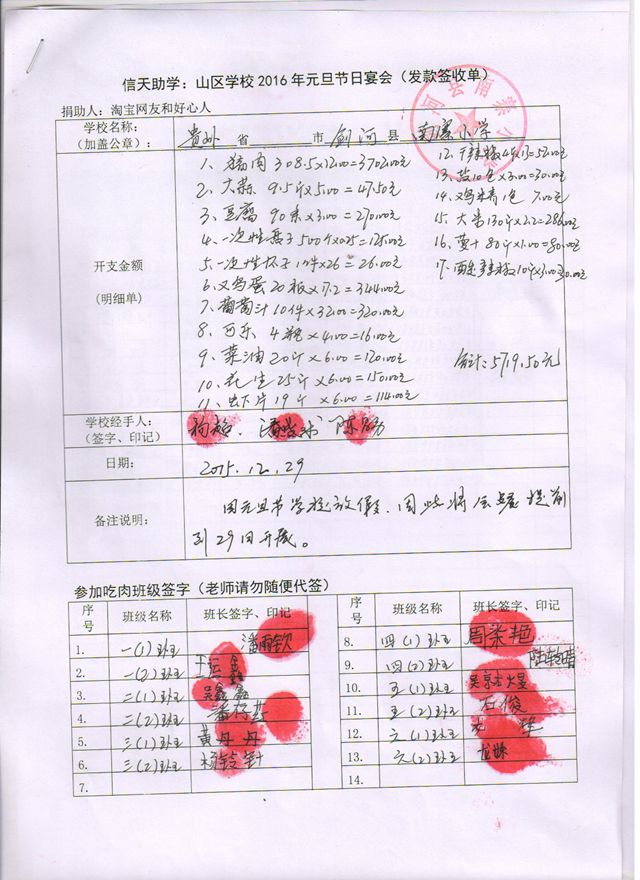 信天助学：山区学校2016年元旦节日宴会（发款签收单）
捐助人：淘宝网友和好心人
学校名称：
（加盖公章）：
贵州 省 市 剑河 县 南寨小学
开支金额
（明细单）
1、猪肉 308.5×12.00=3702.00元
2、大蒜 9.5斤×5.00=47.50元
3、豆腐 90条×3.00=270.00元
4、一次性 500个×0.25=125.00元
5、一次性杯子 1件×26=26.00元
6、鸡蛋20板×17.2=344.00元
7、葡萄汁10件×32.00=320.00元
8、可乐 4瓶×4.00=16.00元
9、菜油20斤×6.00=120.00元
10、花生25斤×6.00=150.00元
11、虾片19斤×6.00=114.00元
12、干辣椒4斤×13=52.00元
13、盐10包×3.00=30.00元
14、鸡精1包 7.00元
15、大米130斤×2.2=286.00元
16、萝卜80斤×1.00=80.00元
17、辣椒10斤×3.00=30.00元
合计：5719.50元
学校经手人：
（签字、印记）
日期：
2015.12.29
备注说明：
因元旦节学校放假，因此将会餐提前
到29日开展。
参加吃肉班级签字（老师请勿随便代签）
序号 班级名称 班长签字、印记
1. 一(1)班 潘雨钦
2. 一(2)班 王运鑫
3. 二(1)班 吴鑫鑫
4. 二(2)班
5. 三(1)班 黄丹丹
6. 三(2)班 杨铃针
7.
序号 班级名称 班长签字、印记
8. 四(1)班 周荣艳
9. 四(2)班
10. 五(1)班
11. 五(2)班 石俊
12. 六(1)班
13. 六(2)班 龙妹
14.